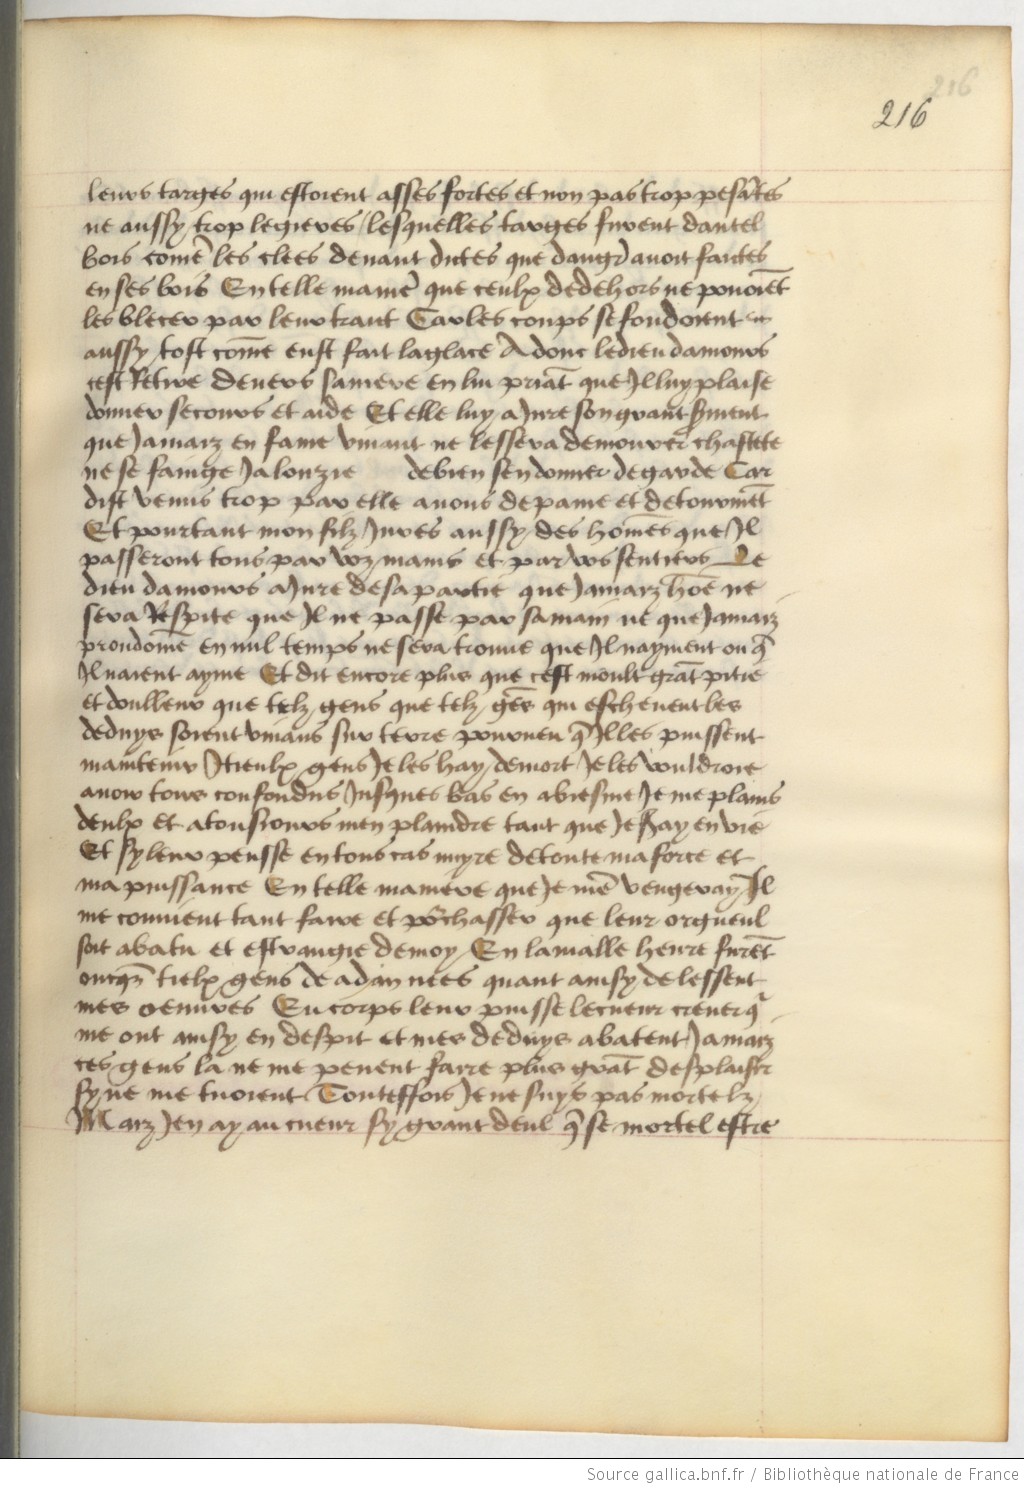 216
216
leurs targes qui estoient asses fortes et non pas trop pesātes
ne aussy trop legieres / lesquelles targes furent dautel
bois comē les clees devant dictes que dangr̄ avoit faictes
en ses bois En telle manier̄ que ceulx dedehors ne pouoiēt
les blecer par leur trait Car les coups se fondoient
aussy tost cōme eust fait la glace Adonc le dieu damours
cest Retire devers sa mere en lui priāt que Il luy plaise
donner secours et aide Et elle luy a Jure son grant s̄ment
que Jamaiz en fame vivant ne lessera demourer chastete
ne se fainge Jalouzie de bien sen donner de garde Car
dist venus trop par elle avons de paine et de tourmēt
Et pourtant mon filz Jures aussy des hōmes que Il
passeront tous par voz mains et par vos sentiers Le
dieu damours a Jure de sa partie que Jamaiz hōe ne
sera Respite que Il ne passe par sa main ne que Jamaiz
proudomē en nul temps ne sera trouve que Il nayment ou q̄
Il naient ayme Et dit encore plus que cest moult grāt pitie
et doulleur que telz gens que telz gēs qui eschevent les
deduys soient vivans sur terre pourveu q̄ Illes puissent
maintenir Itieulx gens Je les hay de mort Je les vouldroie
avoir tous confondus Jusques bas en abiesme Je me plains
deulx et a tousiours men plaindre tant que Je s̄ay en vie
Et sy leur pensse en tous cas nuyre de toute ma force et
ma puissance En telle maniere que Je mē vengeray Il
me convient tant faire et pōchasser que leur orgueul
soit abatu et estrangie de moy En la malle heure furēt
oncq̄z tielx gens de adan nees quant ainsy de lessent
mes oeuvres Eu corps leur puisse le cueur crever q̄
me ont ainsy en despit et mes deduys abatent Jamaiz
ces gens la ne me peuent faire plus grāt desplaisir
sy ne me tuoient Touteffois Je ne suys pas mortelz
Maiz Jen ay au cueur sy grant deul q̄ se mortel estre
Source gallica.bnf.fr / Bibliothèque nationale de France